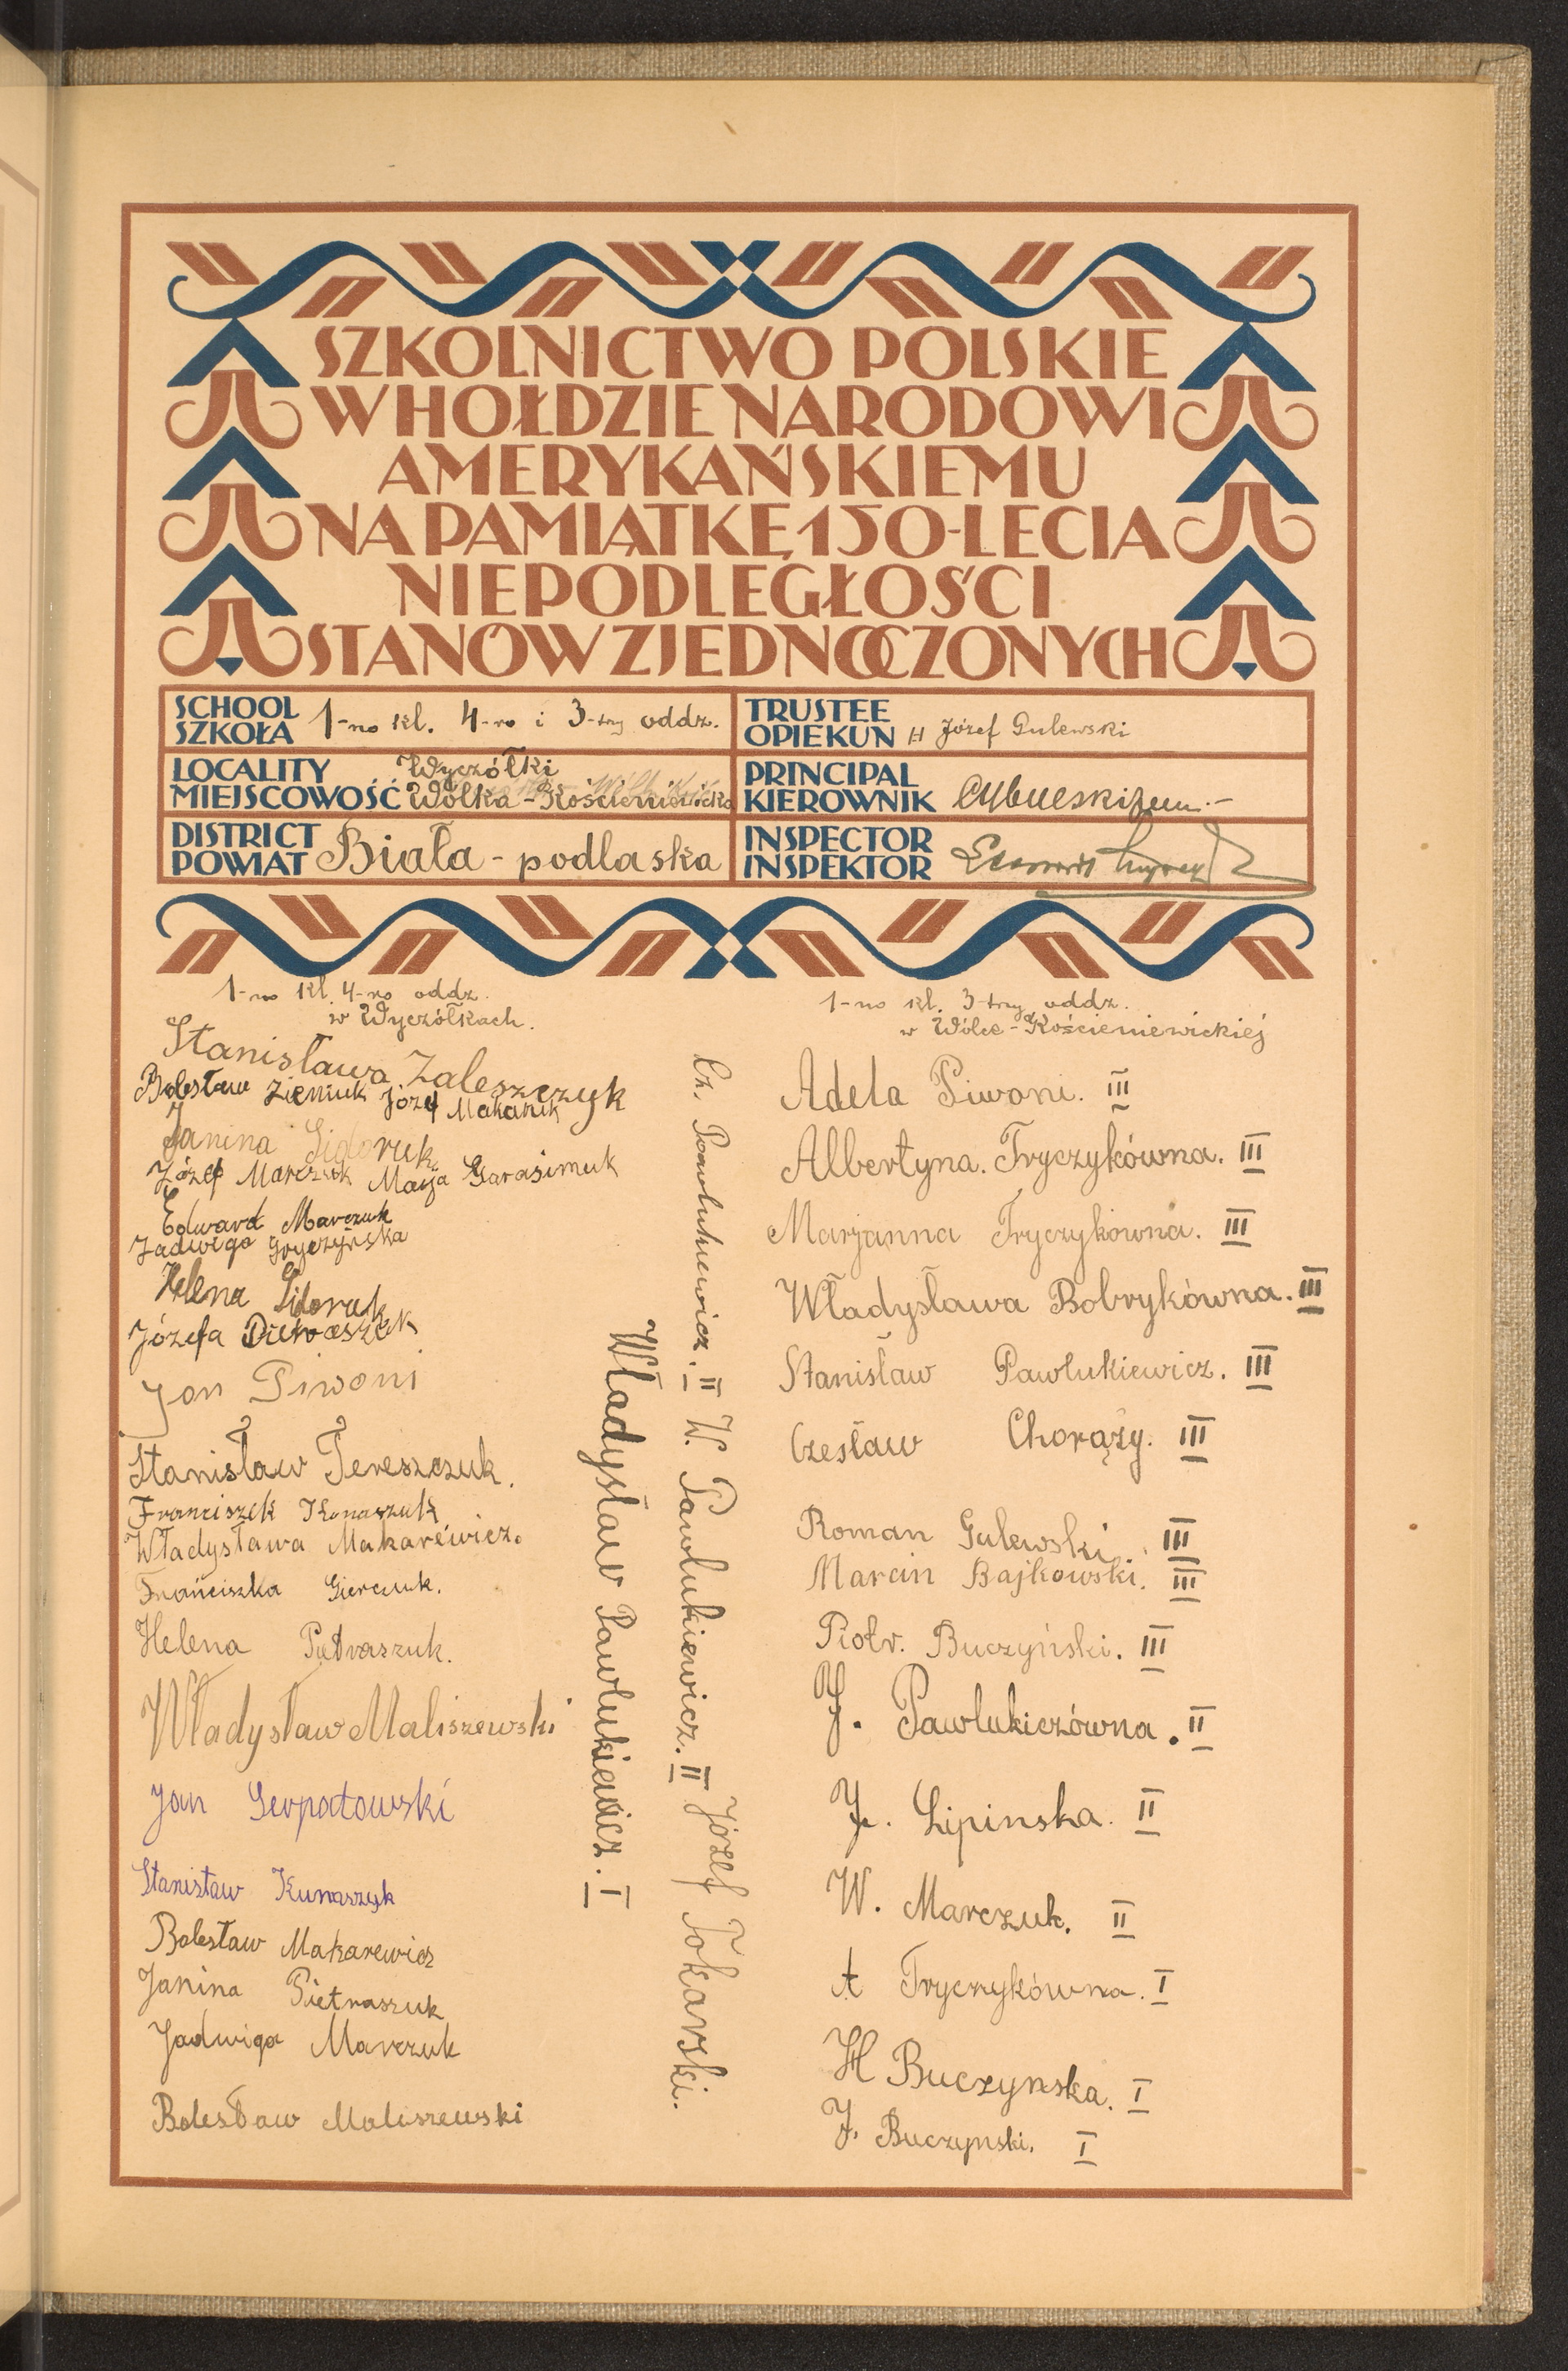 SZKOLNICTWO POLSKIE
W HOŁDZIE NARODOWI
AMERYKAŃSKIEMU
NA PAMIĄTKĘ 150-LECIA
NIEPODLEGŁOŚCI
STANÓW ZJEDNOCZONYCH
SCHOOL
SZKOŁA 1-no kl. 4-ro i 3-trzy oddz.
TRUSTEE
OPIEKUN H Józef Gulewski
LOCALITY Wyczółki
MIEJSCOWOŚĆ Wólka-Kościeniewicka
PRINCIPAL
KIEROWNIK
DISTRICT
POWIAT Biała-podlaska
INSPECTOR
INSPEKTOR
1-no kl. 4-ro oddz.
w Wyczółkach.
Stanisława Zaleszczyk
Bolesław Zieniuk Józef Makaruk
Janina Sidoruk
Józef Marczuk Marja Garasimuk
Edward Marczuk
Jadwiga Gryczyńska
Helena Sidoruk
Józefa Pietraszuk
Jan Piwoni
Stanisław Tereszczuk.
Franciszek Kunaszuk
Władysława Makarewicz.
Franciszka Gierczuk.
Helena Pietraszuk.
Władysław Maliszewski
Jan Serpatowski
Stanisław Kunaszyk
Bolesław Makarewicz
Janina Pietraszuk
Jadwiga Marczuk
Bolesław Maliszewski
Władysław Pawlukiewicz. I
Cz. Pawlukiewicz. II W. Pawlukiewicz. II Józef Tokarski.
1-no kl. 3-trzy oddz.
w Wólce-Kościeniewickiej
Adela Piwoni. III
Albertyna. Tryczykówna. III
Marjanna Tryczykówna. III
Władysława Bobrykówna. III
Stanisław Pawlukiewicz. III
Czesław Chorąży. III
Roman Gulewski. III
Marcin Bajkowski. III
Piotr. Buczyński. III
J. Pawlukiczówna. II
J. Lipinska. II
W. Marczuk. II
A Tryczykówna. I
H Buczynska. I
J. Buczynski. I